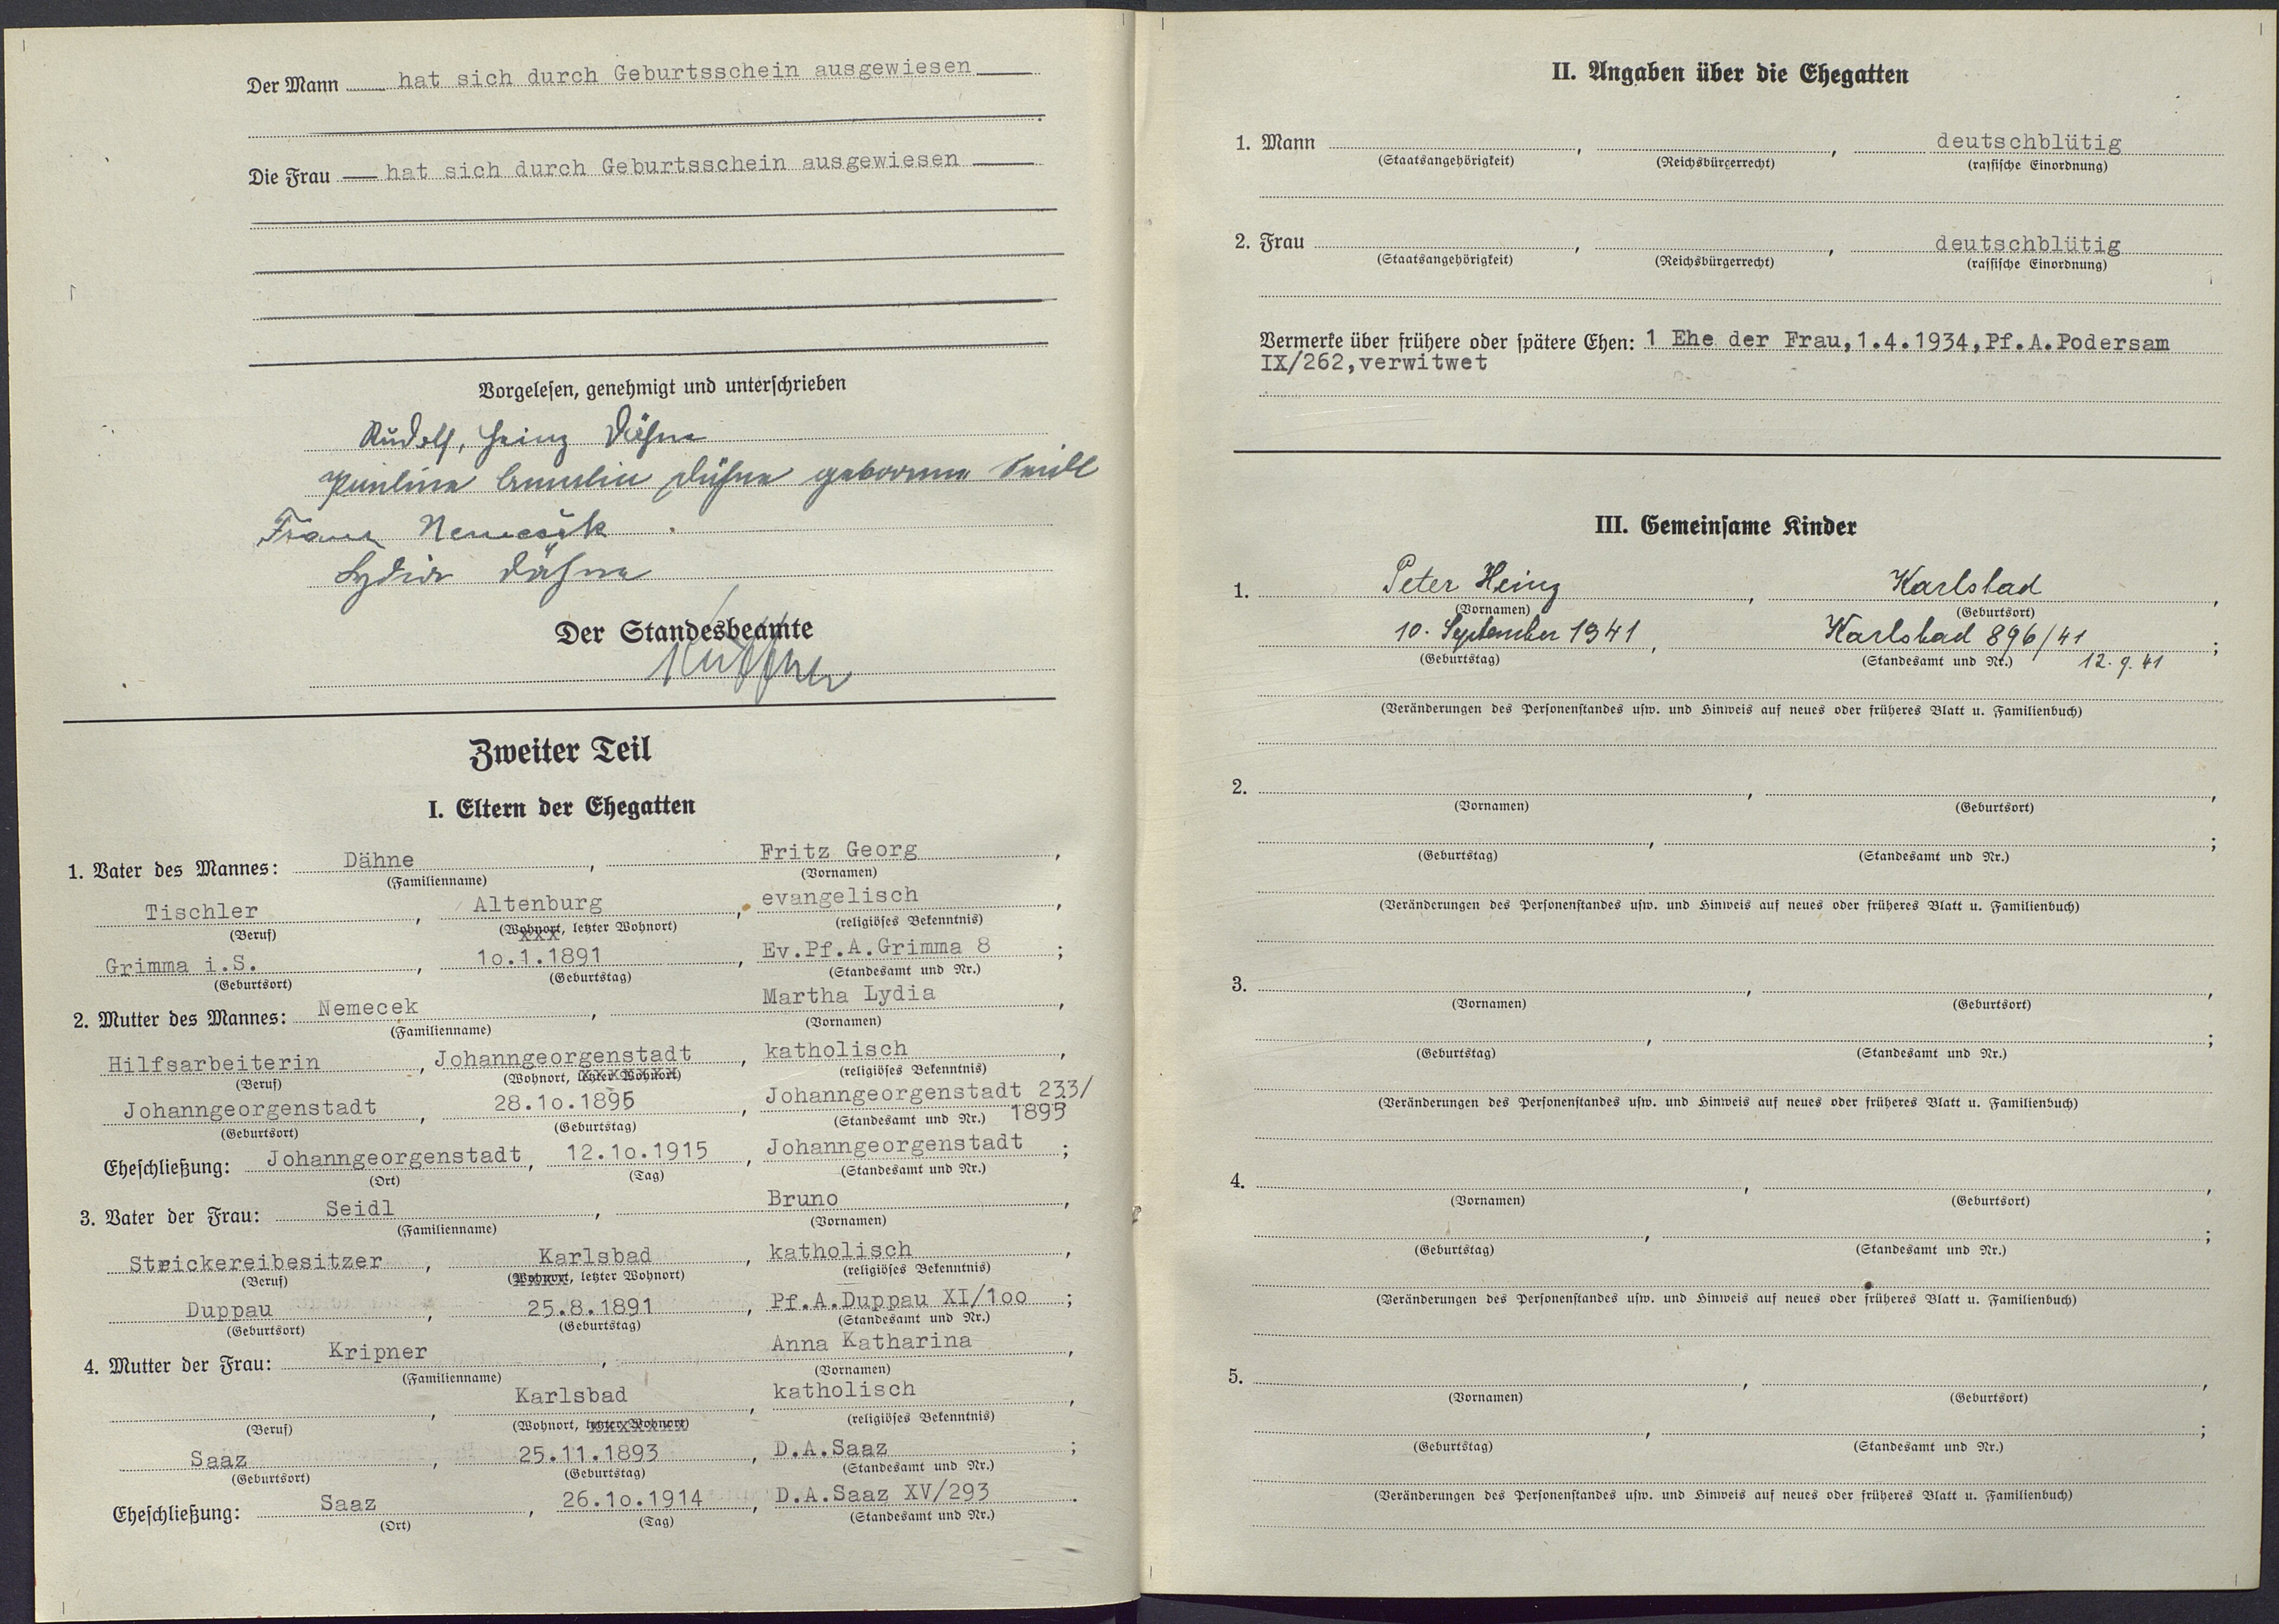 Der Mann hat sich durch Geburtsschein ausgewiesen
Die Frau hat sich durch Geburtsschein ausgewiesen
Vorgelesen, genehmigt und unterschrieben
Rudolf, Heinz Dähne
Pauline Dähne geborene Seidl
Franz
Lydia Dähne
Der Standesbeamte
Zweiter Teil
I. Eltern der Ehegatten
1. Vater des Mannes: Dähne, Fritz Georg,
(Familienname) (Vornamen)
Tischler, Altenburg, evangelisch,
(Beruf) (Wohnort, letzter Wohnort) (religiöses Bekenntnis)
Grimma i.S., 10.1.1891, Ev.Pf.A.Grimma 8;
(Geburtsort) (Geburtstag) (Standesamt und Nr.)
2. Mutter des Mannes: Nemecek, Martha Lydia,
(Familienname) (Vornamen)
Hilfsarbeiterin, Johanngeorgenstadt, katholisch,
(Beruf) (Wohnort, letzter Wohnort) (religiöses Bekenntnis)
Johanngeorgenstadt, 28.10.1895, Johanngeorgenstadt 233/
(Geburtsort) (Geburtstag) (Standesamt und Nr.) 1895
Eheschließung: Johanngeorgenstadt, 12.10.1915, Johanngeorgenstadt;
(Ort) (Tag) (Standesamt und Nr.)
3. Vater der Frau: Seidl, Bruno,
(Familienname) (Vornamen)
Strickereibesitzer, Karlsbad, katholisch,
(Beruf) (Wohnort, letzter Wohnort) (religiöses Bekenntnis)
Duppau, 25.8.1891, Pf.A.Duppau XI/100;
(Geburtsort) (Geburtstag) (Standesamt und Nr.)
4. Mutter der Frau: Kripner, Anna Katharina,
(Familienname) (Vornamen)
, Karlsbad, katholisch,
(Beruf) (Wohnort, letzter Wohnort) (religiöses Bekenntnis)
Saaz, 25.11.1893, D.A.Saaz;
(Geburtsort) (Geburtstag) (Standesamt und Nr.)
Eheschließung: Saaz, 26.10.1914, D.A.Saaz XV/293.
(Ort) (Tag) (Standesamt und Nr.)
II. Angaben über die Ehegatten
1. Mann , , deutschblütig
(Staatsangehörigkeit) (Reichsbürgerrecht) (rassische Einordnung)
2. Frau , , deutschblütig
(Staatsangehörigkeit) (Reichsbürgerrecht) (rassische Einordnung)
Vermerke über frühere oder spätere Ehen: 1 Ehe der Frau,1.4.1934,Pf.A.Podersam
IX/262,verwitwet
III. Gemeinsame Kinder
1. Peter Heinz, Karlsbad,
(Vornamen) (Geburtsort)
10. September 1941, Karlsbad 896/41;
(Geburtstag) (Standesamt und Nr.) 12.9.41
(Veränderungen des Personenstandes usw. und Hinweis auf neues oder früheres Blatt u. Familienbuch)
2. , ,
(Vornamen) (Geburtsort)
, ;
(Geburtstag) (Standesamt und Nr.)
(Veränderungen des Personenstandes usw. und Hinweis auf neues oder früheres Blatt u. Familienbuch)
3. , ,
(Vornamen) (Geburtsort)
, ;
(Geburtstag) (Standesamt und Nr.)
(Veränderungen des Personenstandes usw. und Hinweis auf neues oder früheres Blatt u. Familienbuch)
4. , ,
(Vornamen) (Geburtsort)
, ;
(Geburtstag) (Standesamt und Nr.)
(Veränderungen des Personenstandes usw. und Hinweis auf neues oder früheres Blatt u. Familienbuch)
5. , ,
(Vornamen) (Geburtsort)
, ;
(Geburtstag) (Standesamt und Nr.)
(Veränderungen des Personenstandes usw. und Hinweis auf neues oder früheres Blatt u. Familienbuch)